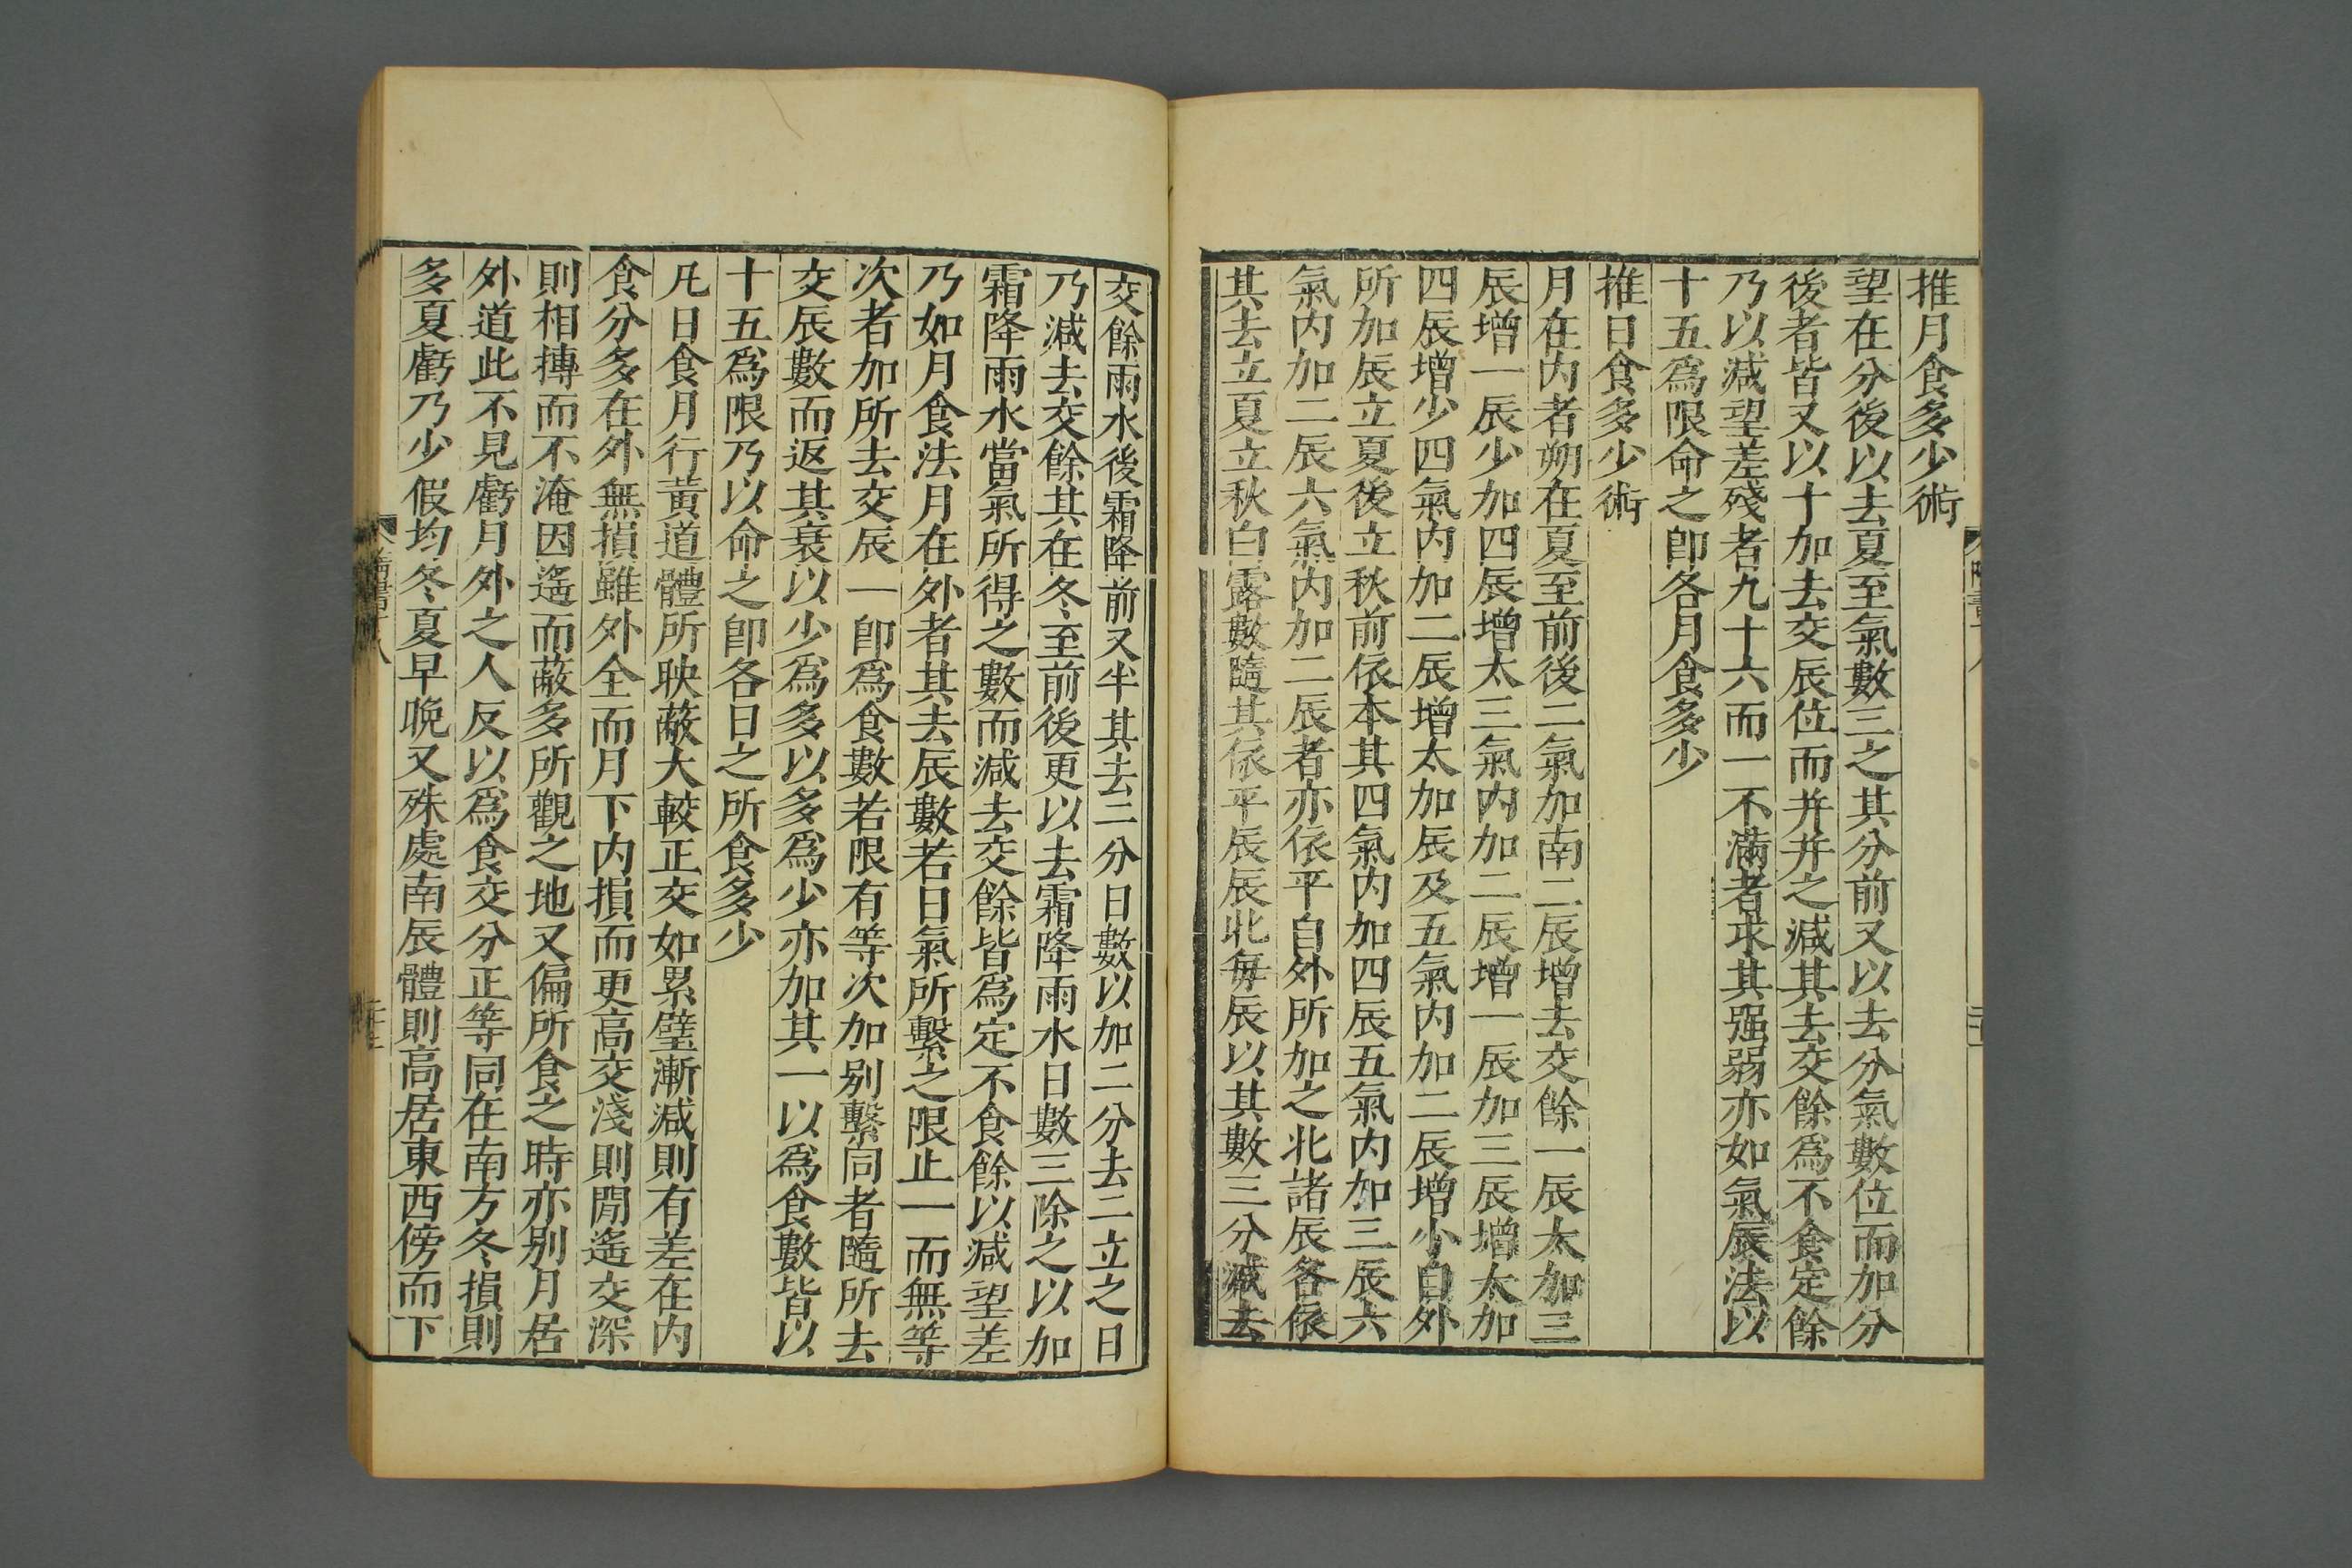 推月食多少術
望在分後以去夏至氣數三之其分前又以去分氣數位而加分
後者皆又以十加去交辰位而并并之減其去交餘爲不食定餘
乃以减望差殘者九十六而一不滿者求其强弱亦如氣辰法以
十五爲限命之卽各月食多少
推日食多少術
月在内者朔在夏至前後二氣加南二辰增去交餘一辰太加三
辰增一辰少加四辰增太三氣内加二辰增一辰加三辰增太加
四辰增少四氣内加二辰增太加辰及五氣内加二辰增小自外
所加辰立夏後立秋前依本其四氣内加四辰五氣内加三辰六
氣内加二辰六氣内加二辰者亦依平自外所加之北諸辰各依
其去立夏立秋白露數隨其依平辰辰北每辰以其數三分减去
交餘雨水後霜降前又半其去二分日數以加二分去二立之日
乃減去交餘其在冬至前後更以去霜降雨水日數三除之以加
霜降雨水當氣所得之數而減去交餘皆爲定不食餘以减望差
乃如月食法月在外者其去辰數若日氣所繫之限止一而無等
次者加所去交辰一卽爲食數若限有等次加别繫同者隨所去
交辰數而返其衰以少爲多以多爲少亦加其一以爲食數皆以
十五爲限乃以命之卽各日之所食多少
凡日食月行黄道體所映蔽大較正交如累璧漸减則有差在内
食分多在外無損雖外全而月下内損而更高交淺則閒遙交深
則相摶而不淹因遙而蔽多所觀之地又偏所食之時亦别月居
外道此不見虧月外之人反以爲食交分正等同在南方冬損則
多夏虧乃少假均冬夏早晚又殊處南辰體則高居東西傍而下